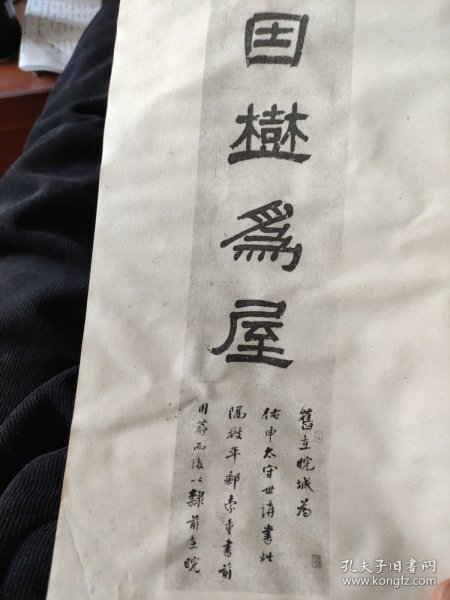 因樹爲屋
舊在皖城為
佑申太守世講書此
隔數年郵索重書前
用篆而後以隸前在皖
孔夫子旧书网
www.kongfz.com